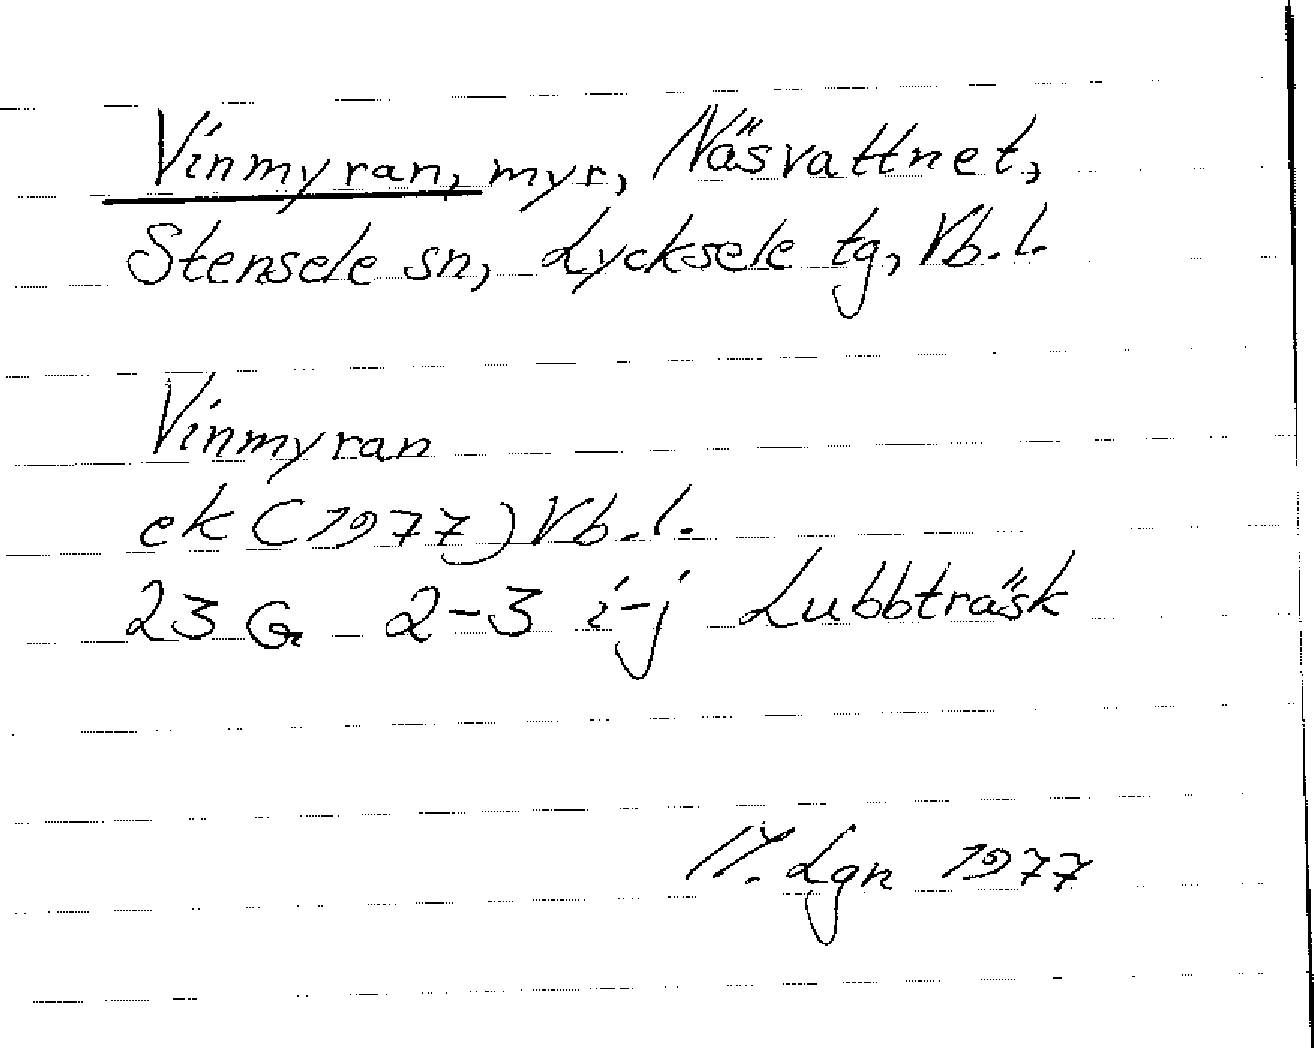 Vinmyran, myr, Näsvattnet,
Stensele sn, Lycksele tg, Vb.l.
Vinmyran
ek (1977) Vb.l.
23 G 2-3 i-j Lubbträsk
Lgn 1977